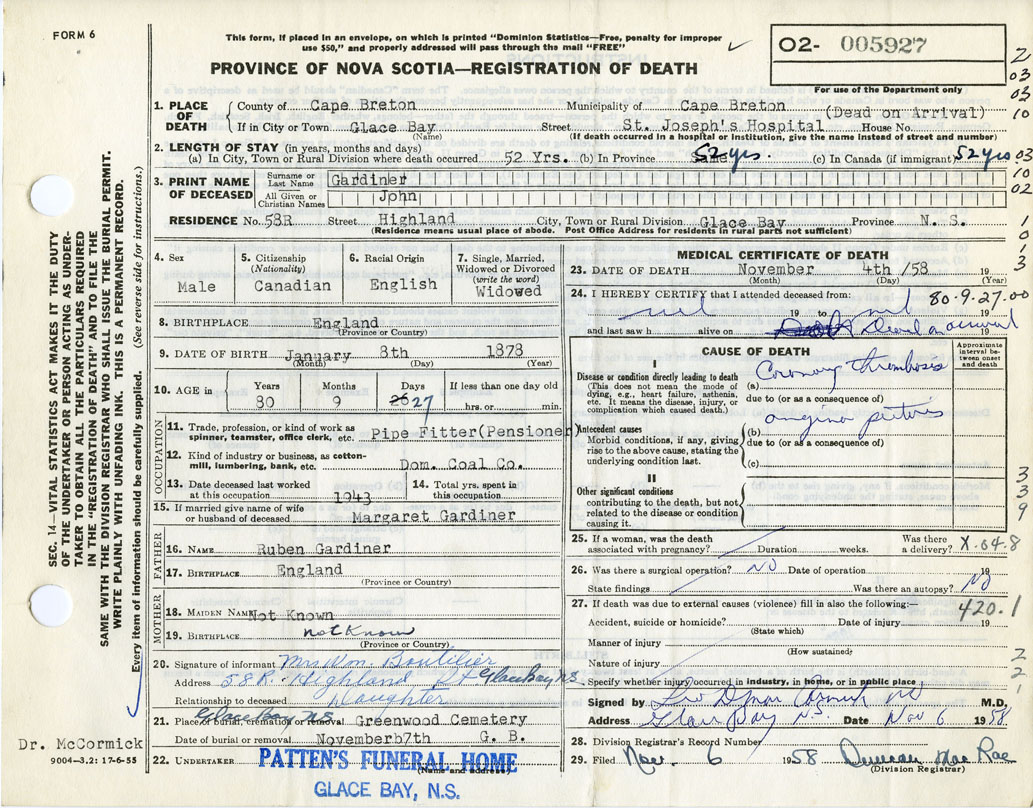 FORM 6
This form, if placed in an envelope, on which is printed "Dominion Statistics—Free, penalty for improper
use $50," and properly addressed will pass through the mail "FREE"
PROVINCE OF NOVA SCOTIA—REGISTRATION OF DEATH
O2- 005927
For use of the Department only
1. PLACE OF DEATH
County of Cape Breton Municipality of Cape Breton
(Dead on Arrival)
If in City or Town Glace Bay Street St. Joseph's Hospital House No.
(Name) (If death occurred in a hospital or institution, give the name instead of street and number)
2. LENGTH OF STAY (in years, months and days)
(a) In City, Town or Rural Division where death occurred 52 Yrs. (b) In Province 52 yrs. (c) In Canada (if immigrant) 52 yrs
3. PRINT NAME OF DECEASED
Surname or Last Name Gardiner
All Given or Christian Names John
RESIDENCE No. 58R Street Highland City, Town or Rural Division Glace Bay Province N. S.
(Residence means usual place of abode. Post Office Address for residents in rural parts not sufficient)
4. Sex
Male
5. Citizenship (Nationality)
Canadian
6. Racial Origin
English
7. Single, Married, Widowed or Divorced (write the word)
Widowed
8. BIRTHPLACE England
(Province or Country)
9. DATE OF BIRTH January 8th 1878
(Month) (Day) (Year)
10. AGE in
Years Months Days If less than one day old
80 9 26 27 hrs. or min.
OCCUPATION
11. Trade, profession, or kind of work as
spinner, teamster, office clerk, etc. Pipe Fitter(Pensioner)
12. Kind of industry or business, as cotton-
mill, lumbering, bank, etc. Dom. Coal Co.
13. Date deceased last worked
at this occupation 1943
14. Total yrs. spent in
this occupation
15. If married give name of wife
or husband of deceased Margaret Gardiner
FATHER
16. NAME Ruben Gardiner
17. BIRTHPLACE England
(Province or Country)
MOTHER
18. MAIDEN NAME Not Known
19. BIRTHPLACE not Known
(Province or Country)
20. Signature of informant Mrs Wm. Boutilier
Address 58 R. Highland St Glace Bay N S
Relationship to deceased Daughter
21. Place of burial, cremation or removal Glace Bay N S Greenwood Cemetery
Date of burial or removal Novemberb7th G. B.
22. UNDERTAKER PATTEN'S FUNERAL HOME
(Name and address)
GLACE BAY, N.S.
MEDICAL CERTIFICATE OF DEATH
23. DATE OF DEATH November 4th /58 19
(Month) (Day) (Year)
24. I HEREBY CERTIFY that I attended deceased from: 80.9.27.00
nil 19 to nil 19
and last saw h alive on Dead on arrival
CAUSE OF DEATH
Approximate interval between onset and death
I
Disease or condition directly leading to death
(This does not mean the mode of
dying, e.g., heart failure, asthenia,
etc. It means the disease, injury, or
complication which caused death.)
(a) Coronary thrombosis
due to (or as a consequence of)
Antecedent causes
Morbid conditions, if any, giving
rise to the above cause, stating the
underlying condition last.
(b) angina pectoris
due to (or as a consequence of)
(c)
II
Other significant conditions
contributing to the death, but not
related to the disease or condition
causing it.
25. If a woman, was the death
associated with pregnancy? Duration weeks. Was there
a delivery? X.64.8
26. Was there a surgical operation? No Date of operation 19
State findings Was there an autopsy? No
27. If death was due to external causes (violence) fill in also the following:— 420.1
Accident, suicide or homicide? Date of injury 19
(State which)
Manner of injury
(How sustained)
Nature of injury
Specify whether injury occurred in industry, in home, or in public place
Signed by M.D,
Address Glace Bay N.S. Date Nov 6 1958
28. Division Registrar's Record Number
29. Filed Nov. 6 1958 Duncan MacRae
(Division Registrar)
SEC. 14—VITAL STATISTICS ACT MAKES IT THE DUTY
OF THE UNDERTAKER OR PERSON ACTING AS UNDER-
TAKER TO OBTAIN ALL THE PARTICULARS REQUIRED
IN THE "REGISTRATION OF DEATH" AND TO FILE THE
SAME WITH THE DIVISION REGISTRAR WHO SHALL ISSUE THE BURIAL PERMIT.
WRITE PLAINLY WITH UNFADING INK. THIS IS A PERMANENT RECORD.
Every item of information should be carefully supplied. (See reverse side for instructions.)
Dr. McCormick
9004—3.2: 17-6-55
2
03
03
10
03
10
02
1
0
1
3
3
3
9
2
2
1